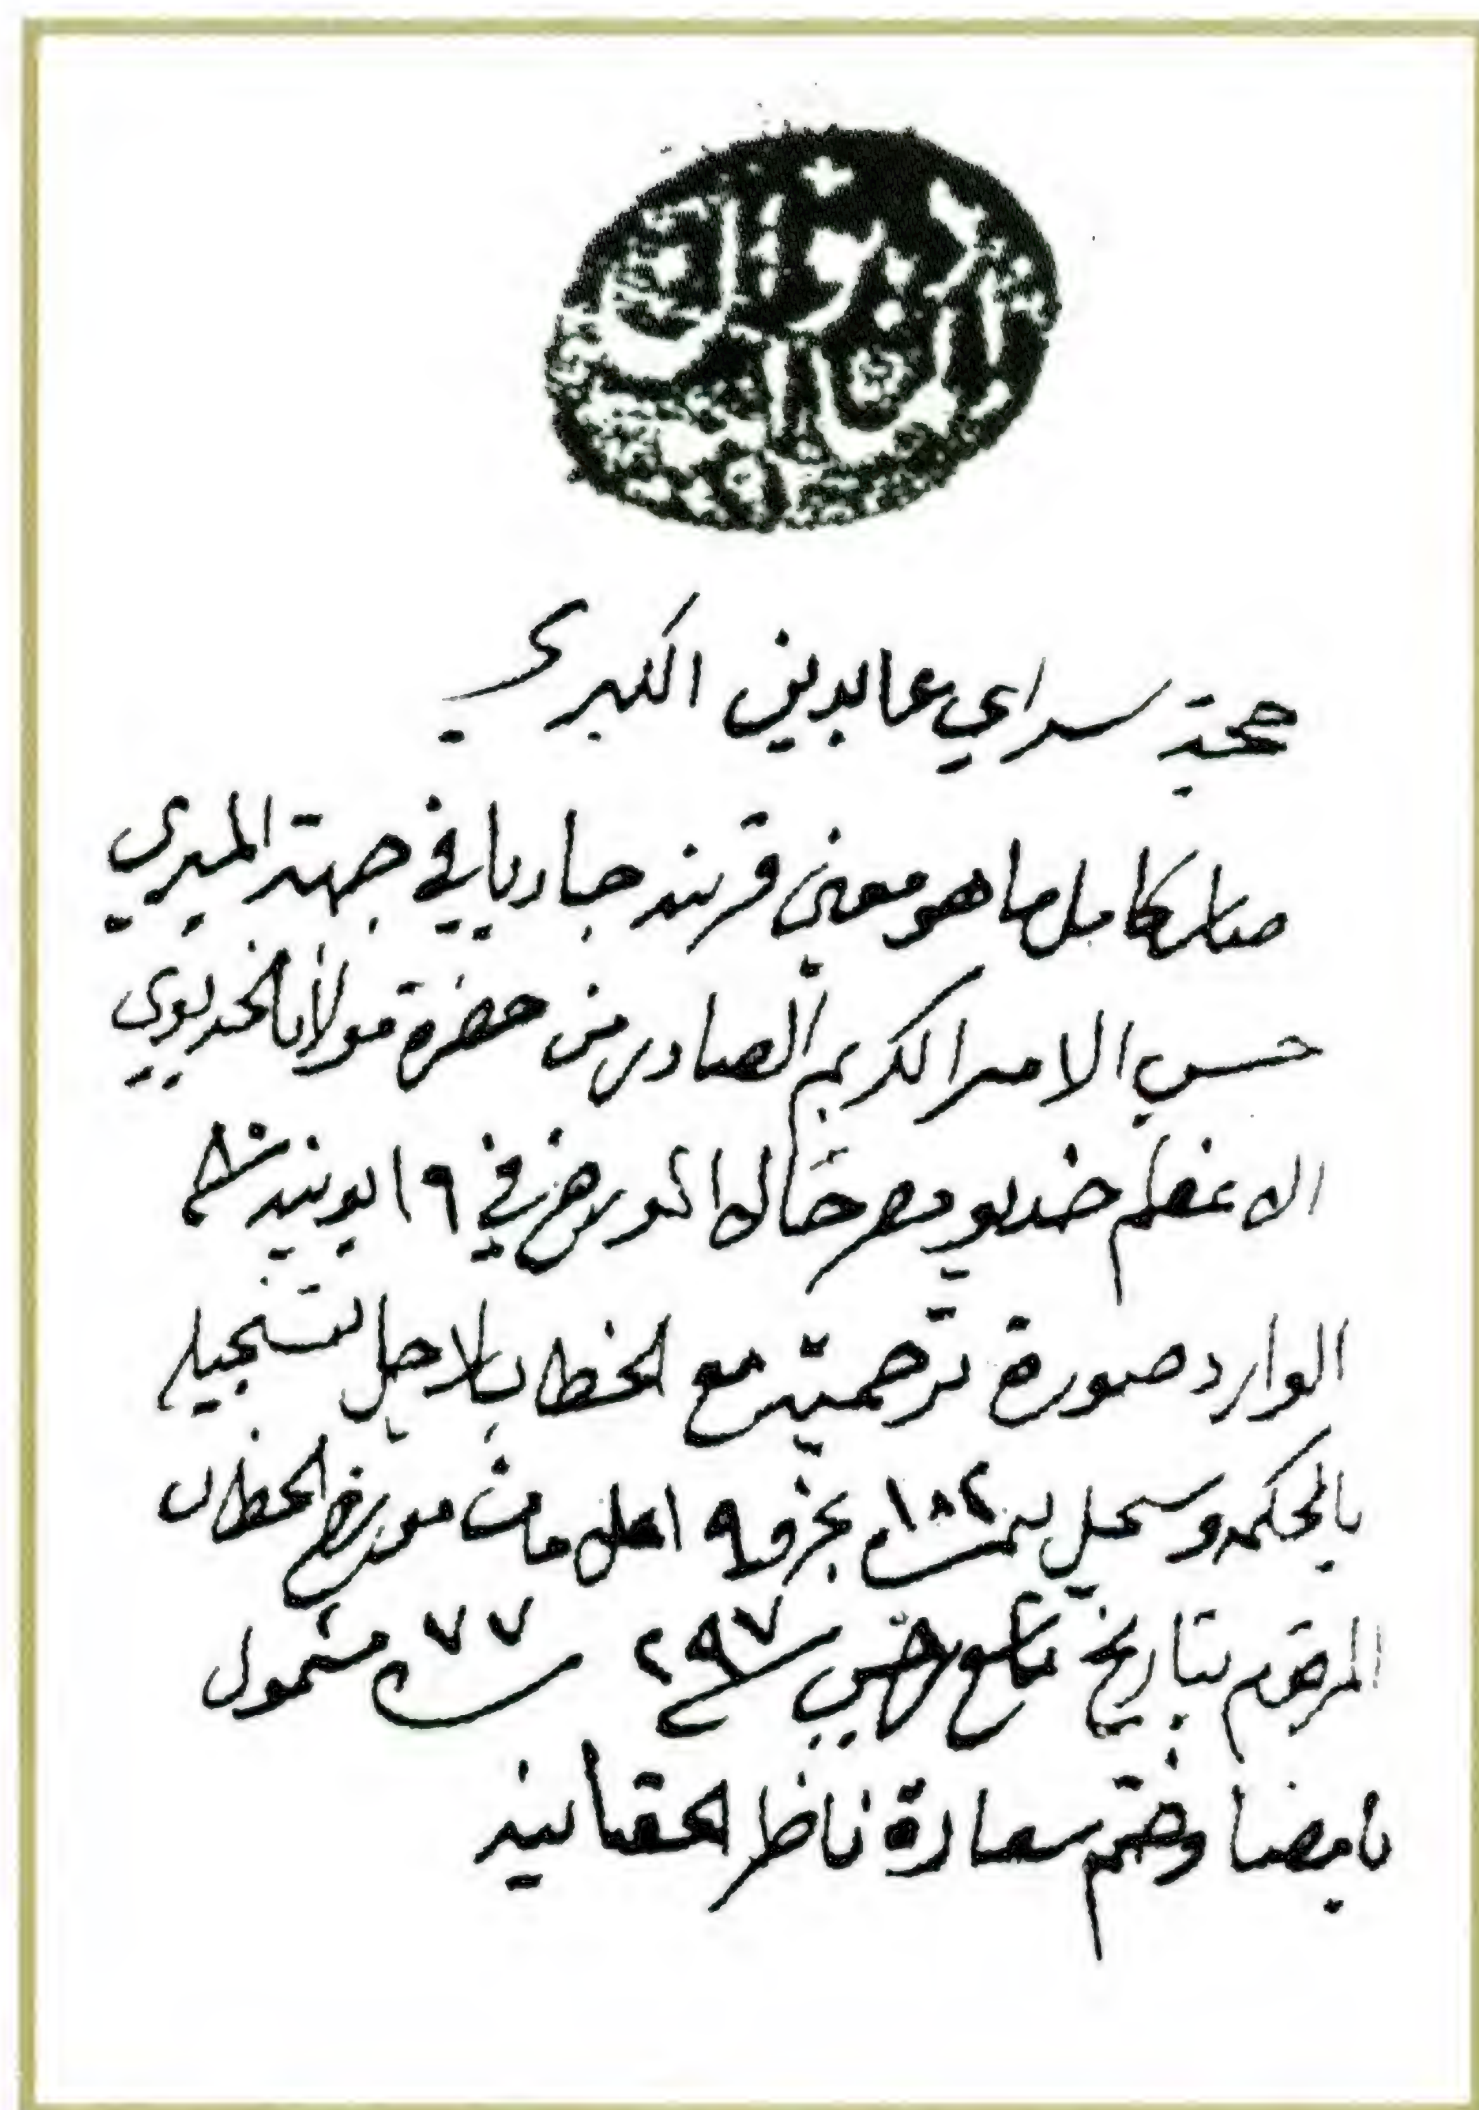 حجة سراي عابدين الكبرى
صار كامل ما هو معين قرينه جاريا في جهة الميري
حسب الامر الكريم الصادر من حضرة مولانا الخديوي
الاعظم خديو مصر حالا المورخ في ١٩ يونيه سنة ٨٠
الوارد صورة ترجمته مع الخطاب لاجل تسجيله
بالمحكمه وسجل بنمرة ١٨٢ بجزو ٩ اعلامات مورخ الخطاب
المرقوم بتاريخ تاسع سنة ٢٩٧ نمرة ٧٧ مشمول
بامضا وختم سعادة ناظر الحقانيه